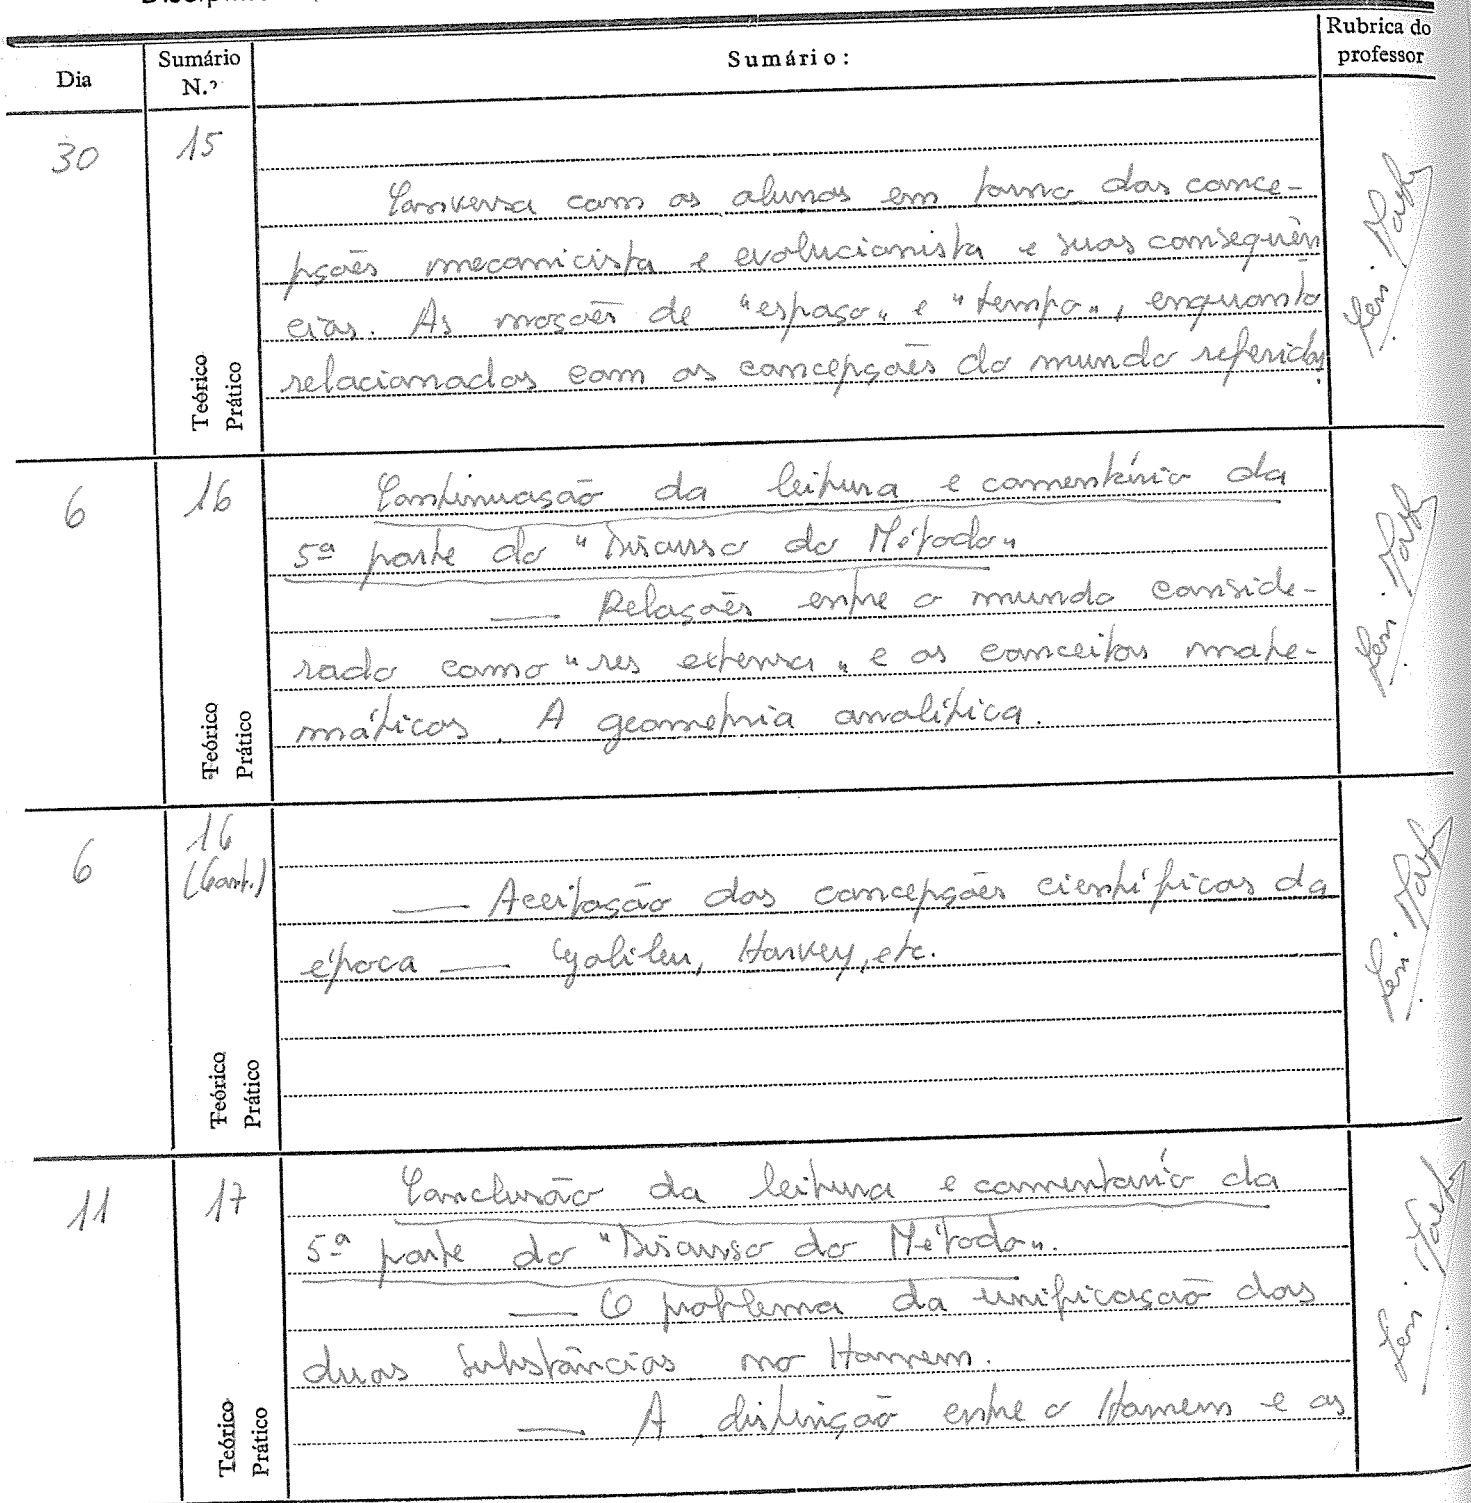 Dia
Sumário
N.º
Sumário:
Rubrica do
professor
30
15
Conversa com os alunos em torno das conce-
pções mecanicista e evolucionista e suas consequên
cias. As noções de "espaço" e "tempo", enquanto
relacionados com as concepções do mundo referidas.
Teórico
Prático
6
16
Continuação da leitura e comentário da
5ª parte do "Discurso do Método"
— Relações entre o mundo conside-
rado como "res extensa" e os conceitos mate-
máticos. A geometria analítica.
Teórico
Prático
6
16
(Cont.)
— Aceitação das concepções científicas da
época — Galileu, Harvey, etc.
Teórico
Prático
11
17
Conclusão da leitura e comentário da
5ª parte do "Discurso do Método".
— O problema da unificação das
duas substâncias no Homem.
— A distinção entre o Homem e os
Teórico
Prático